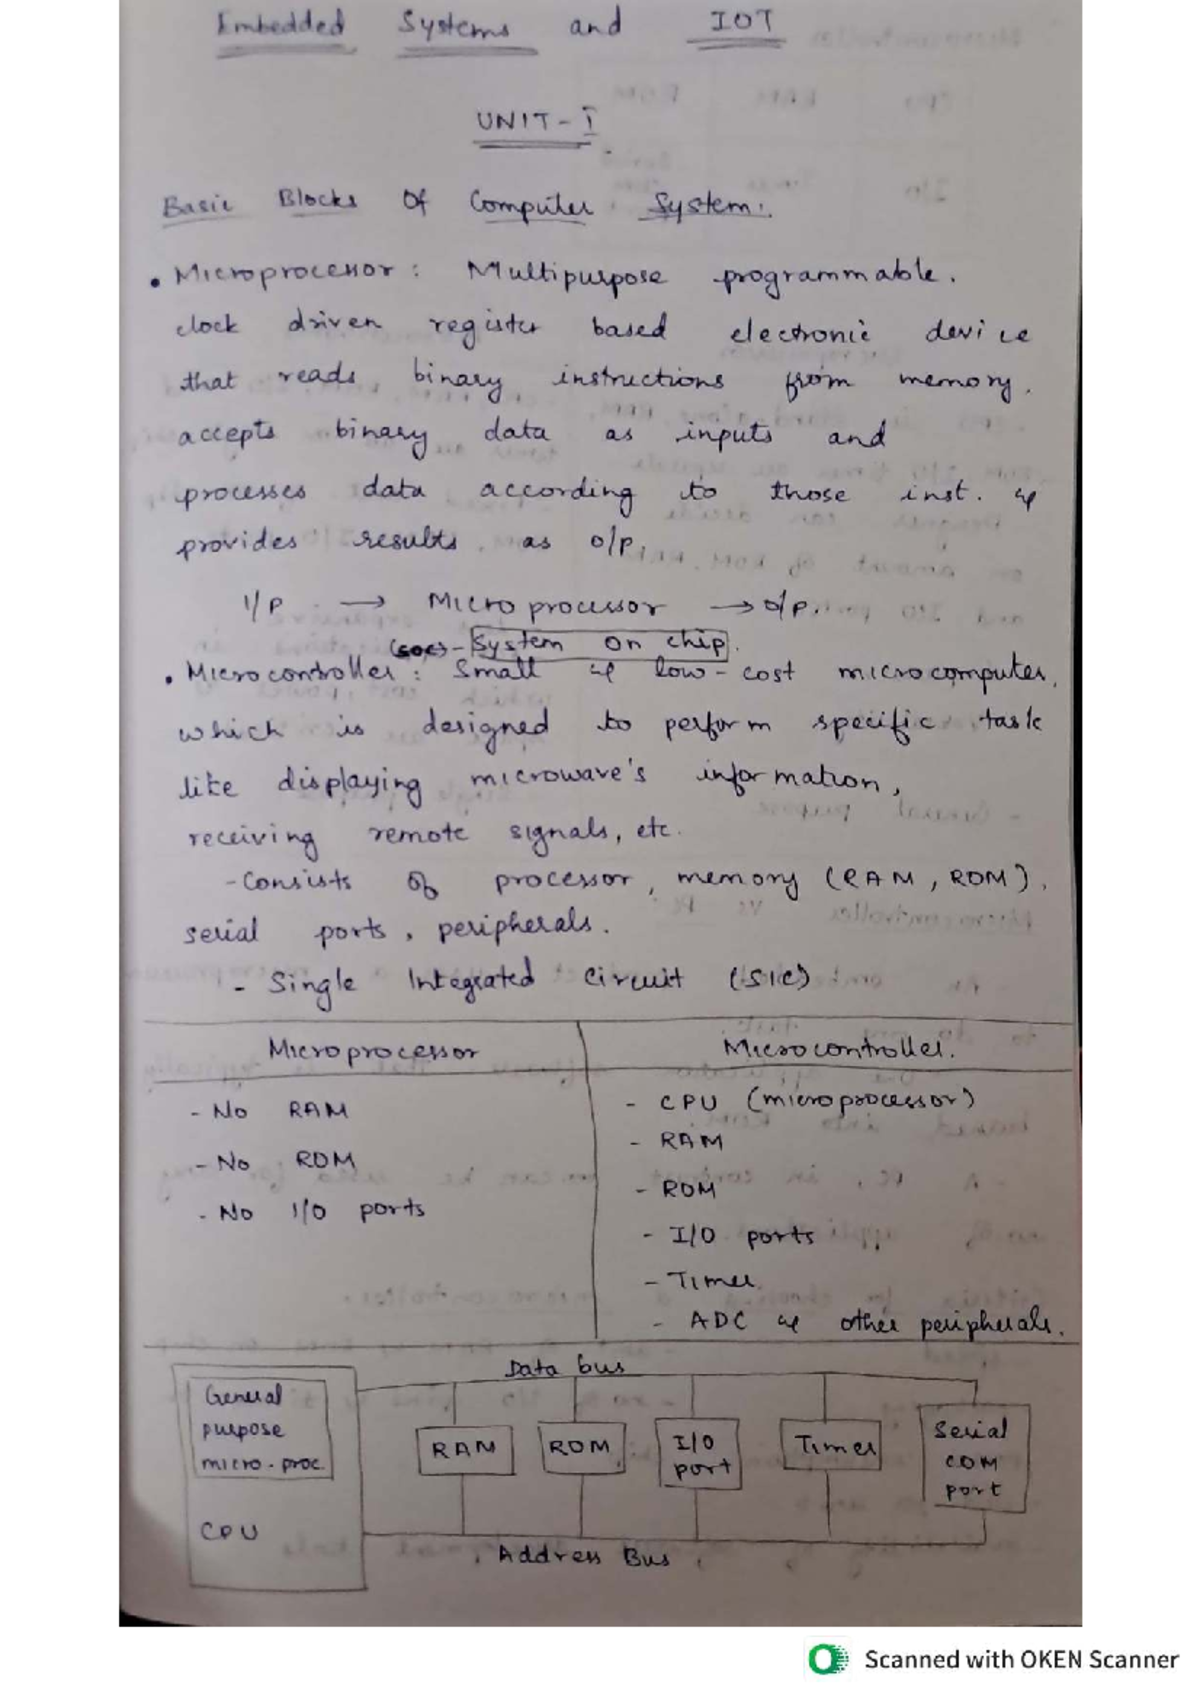 Embedded Systems and IOT
UNIT - I
Basic Blocks Of Computer System:
• Microprocessor : Multipurpose programmable,
clock driven register based electronic device
that reads binary instructions from memory,
accepts binary data as inputs and
processes data according to those inst. &
provides results as o/p.
I/P → Microprocessor → o/p.
(SOC) - System on chip
• Microcontroller : Small & low-cost microcomputer,
which is designed to perform specific task
like displaying microwave's information,
receiving remote signals, etc.
- Consists of processor, memory (RAM, ROM),
serial ports, peripherals.
- Single Integrated Circuit (SIC)
Microprocessor
- No RAM
- No ROM
- No I/O ports
Microcontroller.
- CPU (microprocessor)
- RAM
- ROM
- I/O ports
- Timer
- ADC & other peripherals.
Data bus
General
purpose
micro-proc.
CPU
RAM
ROM
I/O
port
Timer
Serial
COM
port
Address Bus
Scanned with OKEN Scanner